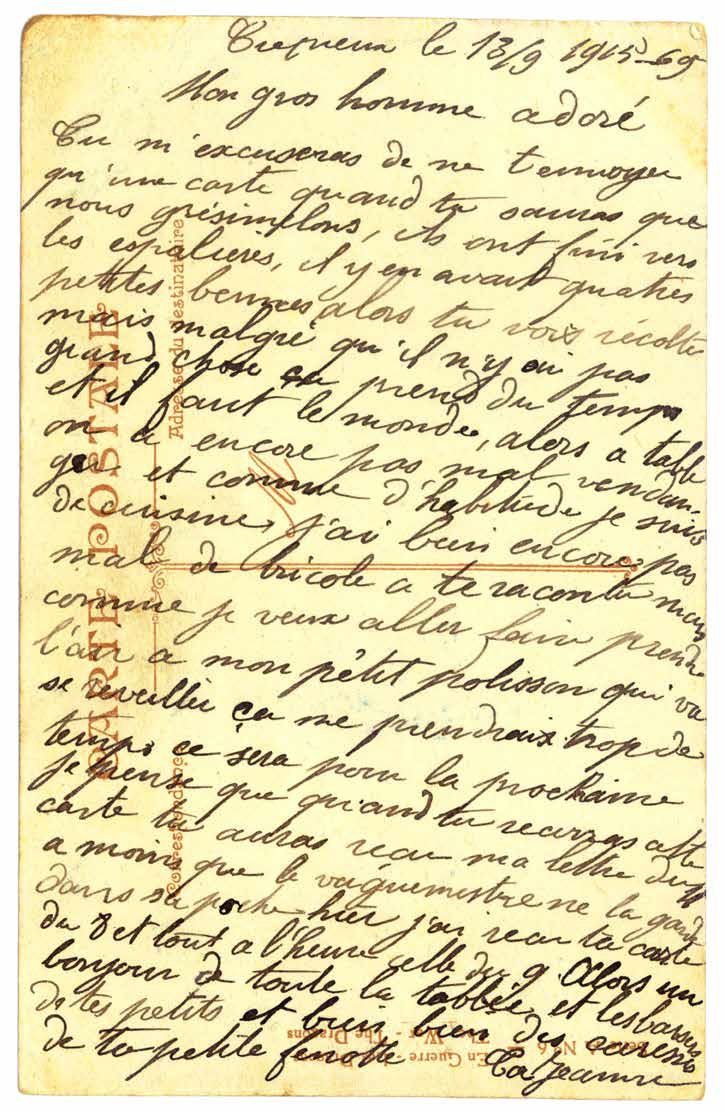 le 13/9 1915 - 69
Mon gros homme adoré
Tu m'excuseras de ne t'envoyer
qu'une carte quand tu sauras que
nous grésimelons, ils ont fini vers
les espalières, il y en avait quatres
petites bennes alors tu vois récolte
mais malgré qu'il n'y ai pas
grand chose ça prend du temps
et il faut le monde, alors a table
on a encore pas mal vendan-
ger et comme d'habitude je suis
de cuisine, j'ai bien encore pas
mal de bricole a te raconter mais
comme je veux aller faire prendre
l'air a mon pétit polisson qui va
se reveiller ça me prendrait trop de
temps ce sera pour la prochaine
je pense que quand tu recevras cette
carte tu auras recu ma lettre du
a moins que le vaguemestre ne la garde
dans sa poche hier j'ai recu ta carte
du 8 et tout a l'heure celle du 9 Alors un
bonjour de toute la tablée et les baisers
de tes petits et bien bien des caresses
de ta petite fenotte Ta Jeanne
CARTE POSTALE
Correspondance
Adresse du destinataire
Série A No 6
En Guerre - Les Dragons
The War - The Dragons